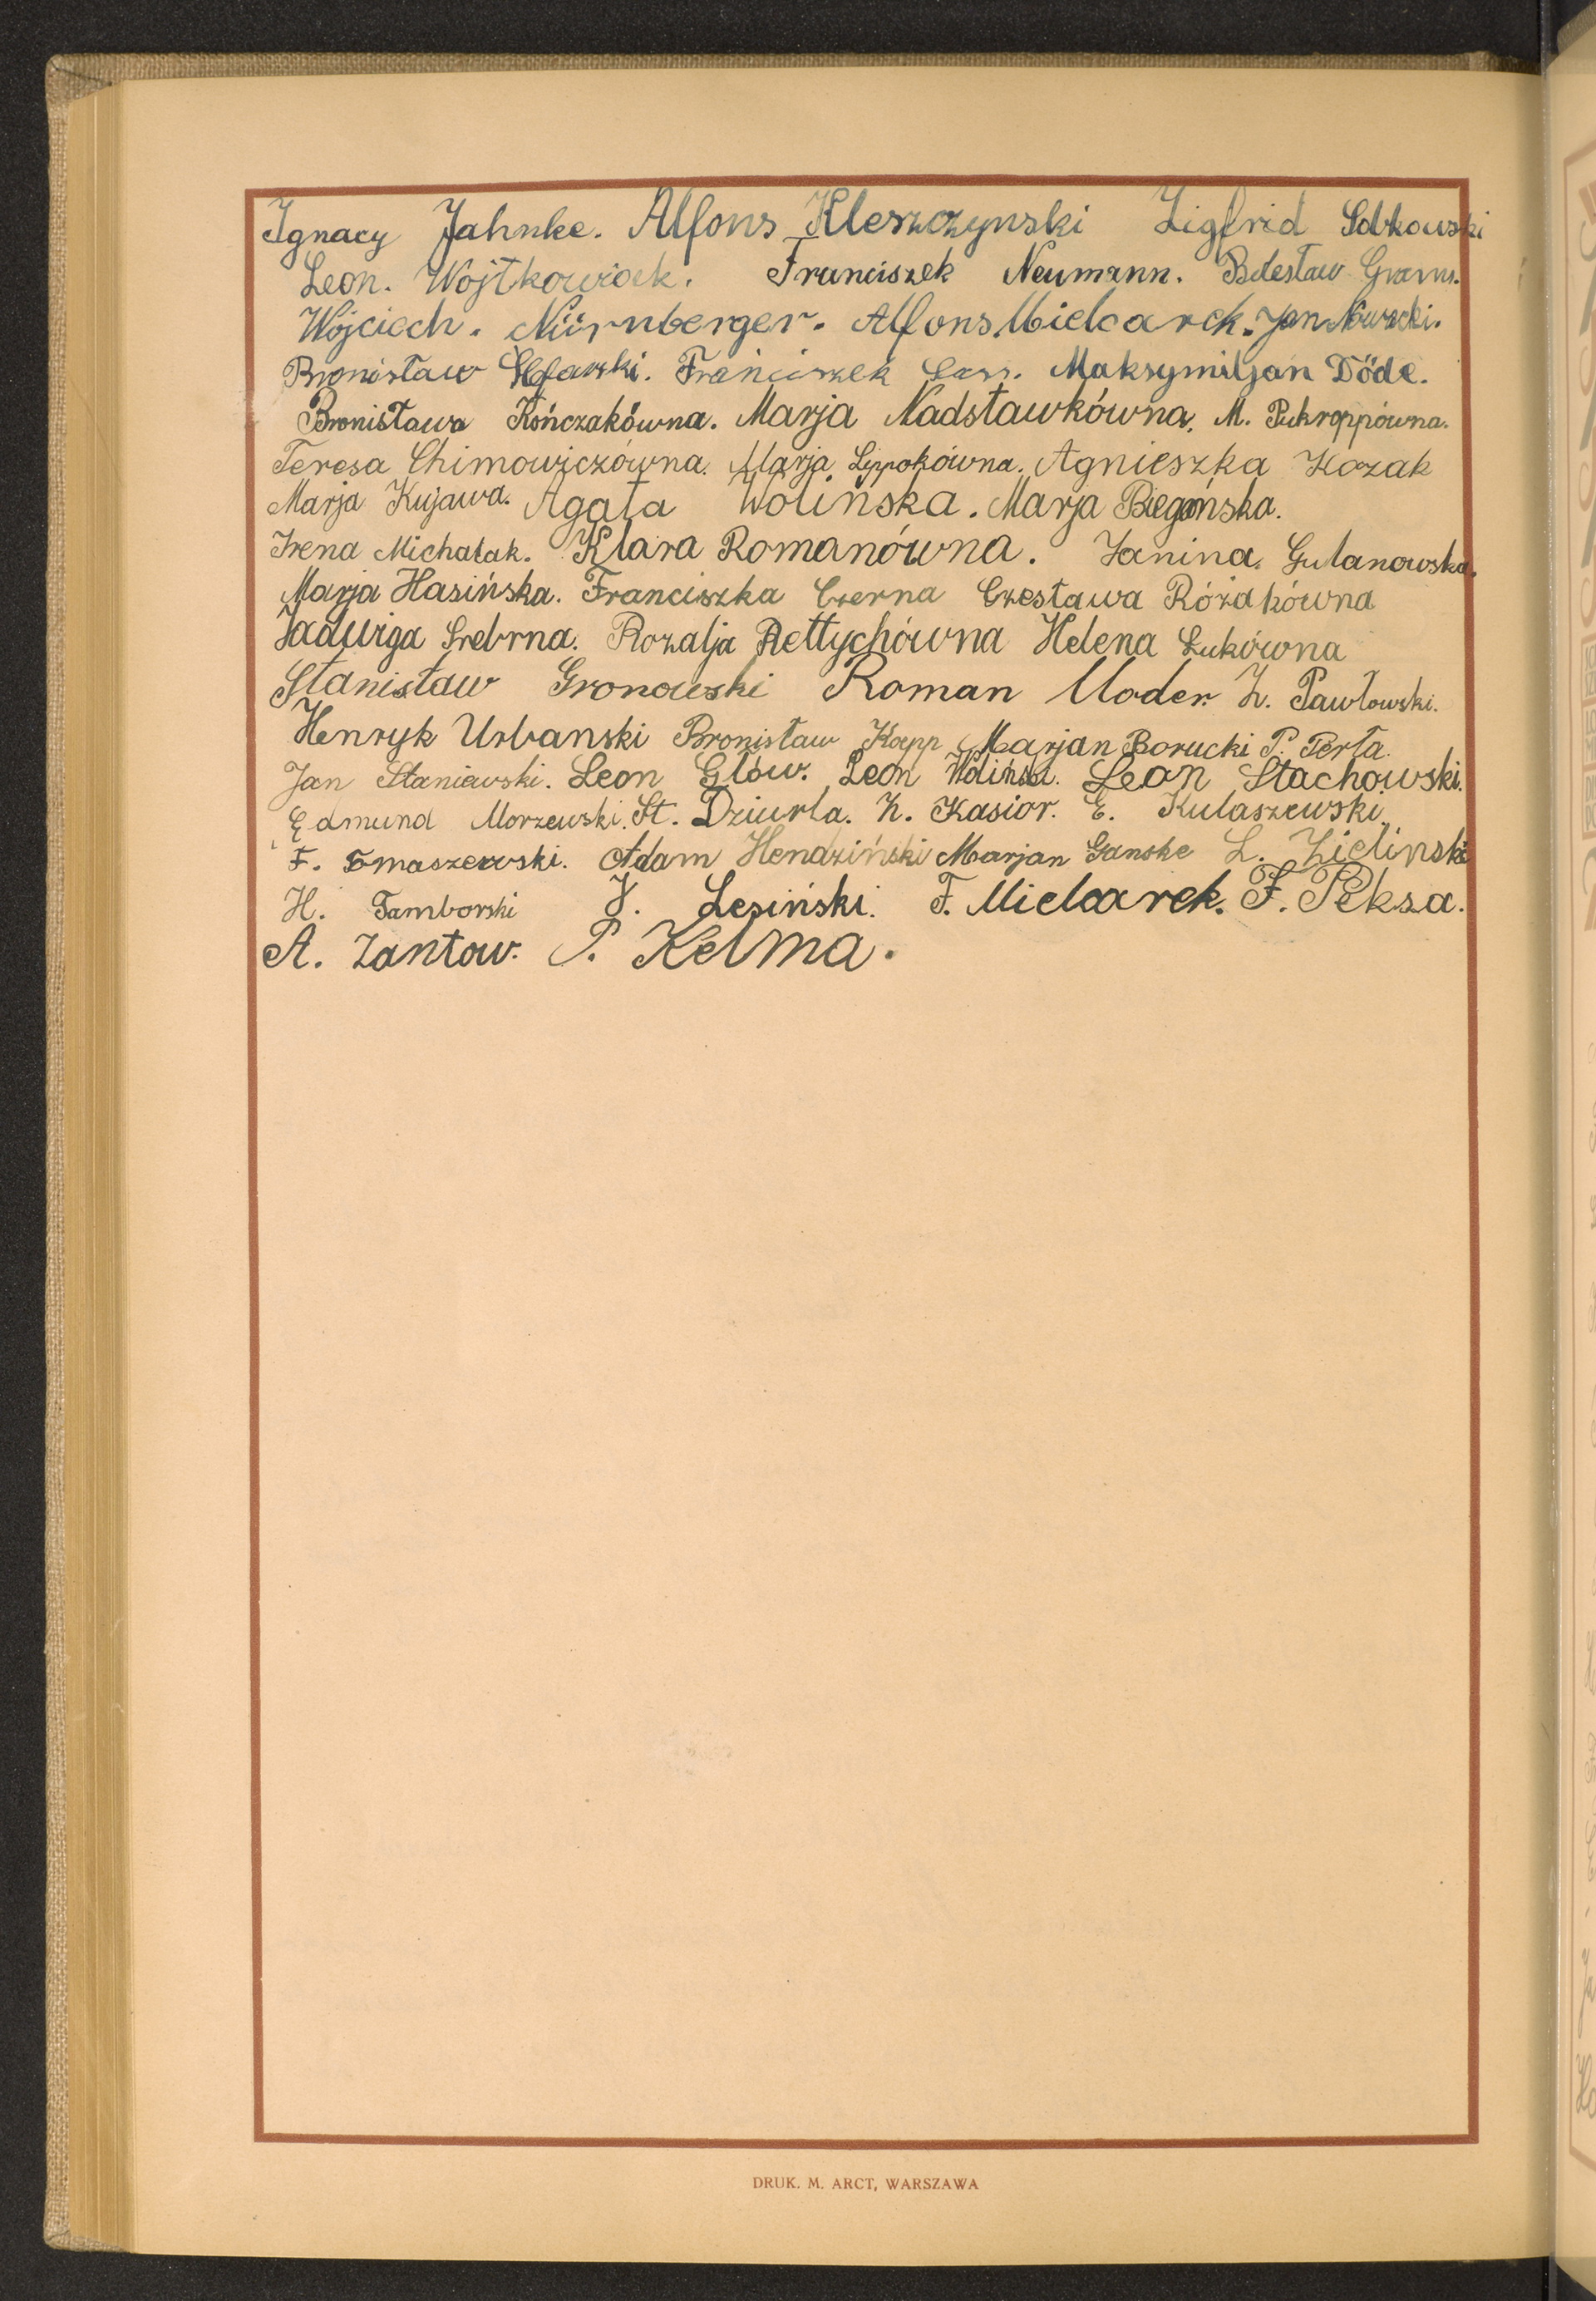 Ignacy Jahnke. Alfons Kleszczynski Zigfrid Sobkowski
Leon. Wojtkowiak. Franciszek Neumann. Bolesław Grams.
Wojciech. Nürnberger. Alfons. Mielcarek. Jan Nowacki.
Bronisław Franciszek Maksymiljan Döde.
Bronisława Kończakówna. Marja Nadstawkówna. M. Puhroppówna.
Teresa Chimowiczówna. Marja Lippokówna. Agnieszka Kozak
Marja Kujawa. Agata Wolińska. Marja Biegońska.
Irena Michalak. Klara Romanówna. Janina. Gulanowska.
Marja Hasińska. Franciszka Czerna Czesława Rózakówna
Jadwiga Srebrna. Rozalja Rettychówna Helena Łukówna
Stanisław Gronowski Roman Moder. Z. Pawłowski.
Henryk Urbanski Bronisław Kopp Marjan Borucki P. Perta.
Jan Staniewski. Leon Glów. Leon Woliński. Leon Stachowski.
Edmund Morzewski. St. Dziurla. K. Kasior. E. Kulaszewski.
F. Tomaszewski. Adam Hendziński Marjan Ganske L. Zielinski
H. Tamborski J. Lesiński. F. Mielcarek. F. Peksa.
A. Zantow. P. Kelma.
DRUK. M. ARCT, WARSZAWA